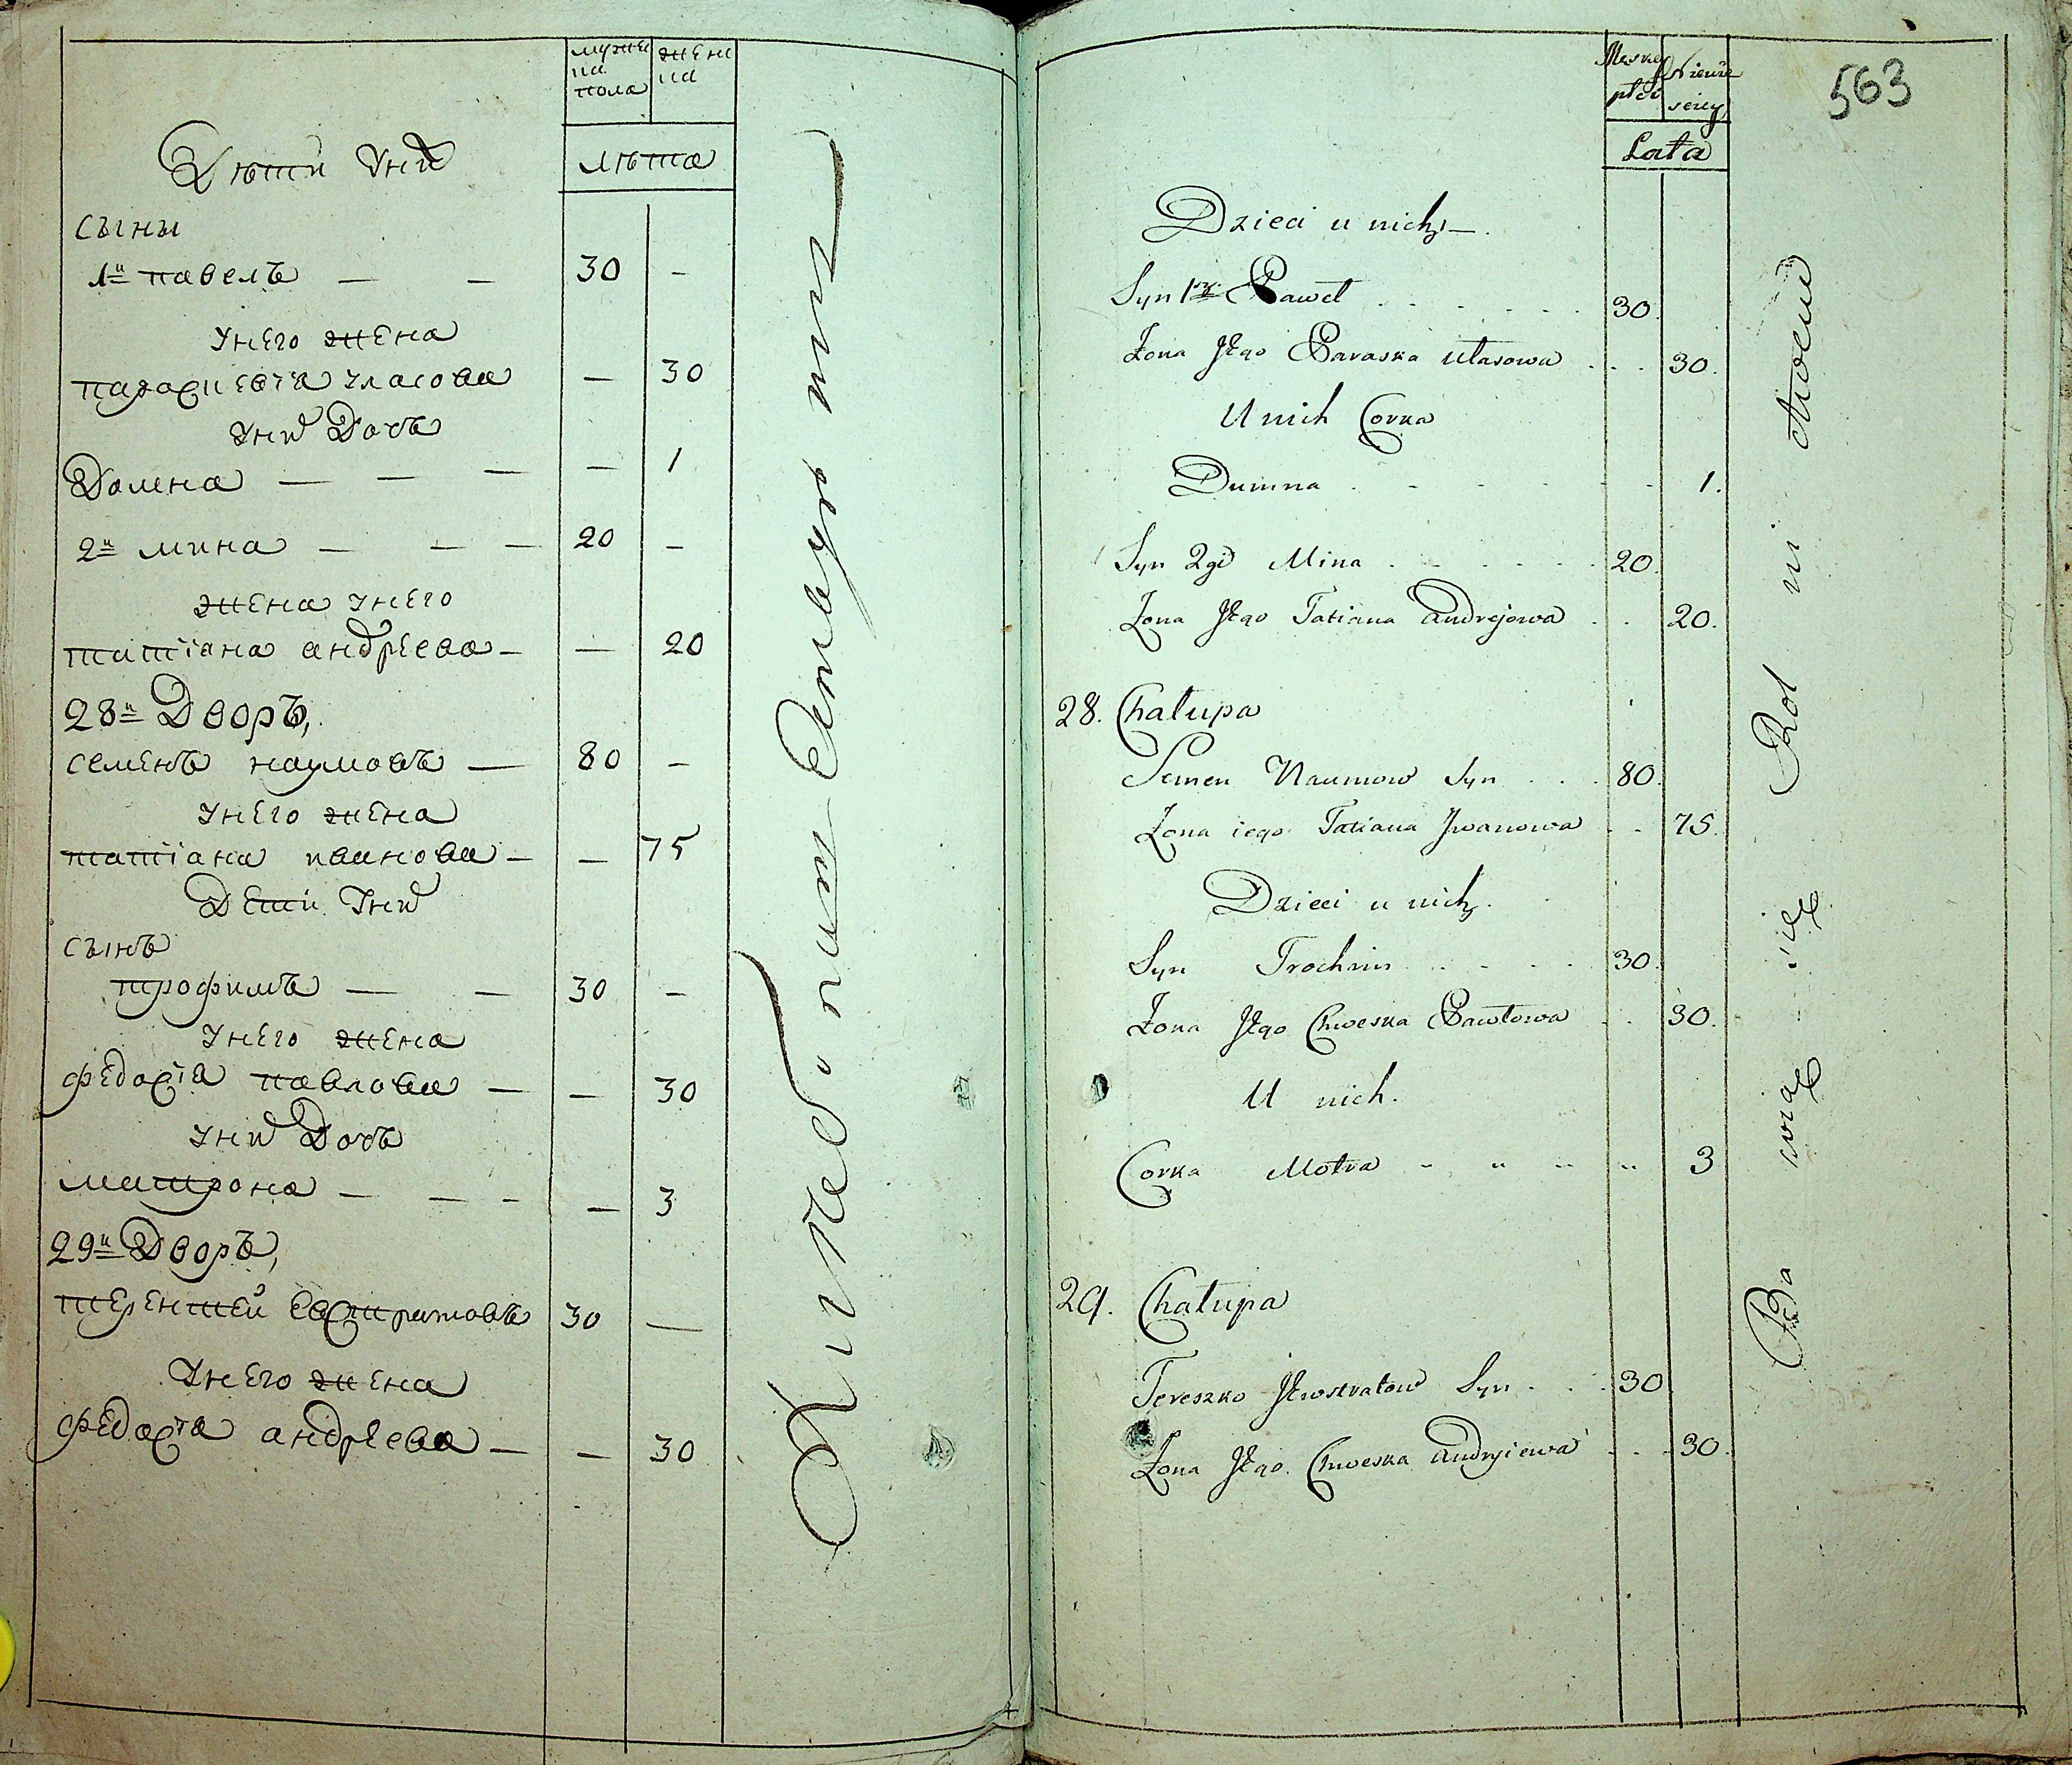 мужес
ка
пола
женс
ка
лѣта
Дѣти у них
сыны
1й павелъ — — 30 -
у него жена
параскевіа уласова — 30
у них Дочь
Домна — — — — 1
2й мина — — — 20 -
жена у него
татіана андреева — — 20
28й Дворъ,
семенъ наумовъ — 80 -
у него жена
татіана иванова — — 75
Дети у них
сынъ
трофимъ — — 30 -
у него жена
федосіа павлова — — 30
у них Дочь
матрона — — - — 3
29й Дворъ,
терентей евстратовъ 30 —
у него жена
федосіа андреева — — 30
563
Męskiey
płci
Lata
Dzieci u nich —
Syn 1szy Paweł . . . . . . 30.
Żona Jego Paraska Ułasowa . . . 30.
U nich Corka
Dumna . - - - - - 1.
Syn 2gi Mina . - . . . . 20.
Żona Jego Tatiana Andrejowa . . 20.
28. Chałupa
Semen Naumow Syn . . . 80.
Żona iego Tatiana Jwanowa . . 75.
Dzieci u nich.
Syn Trochim . . . . 30.
Żona Jego Chweska Pawłowa . . 30.
U nich.
Corka Motra " " " " 3
29. Chałupa
Tereszko Jewstratow Syn . . . 30
Żona Jego Chweska Andryiewa . . . 30.